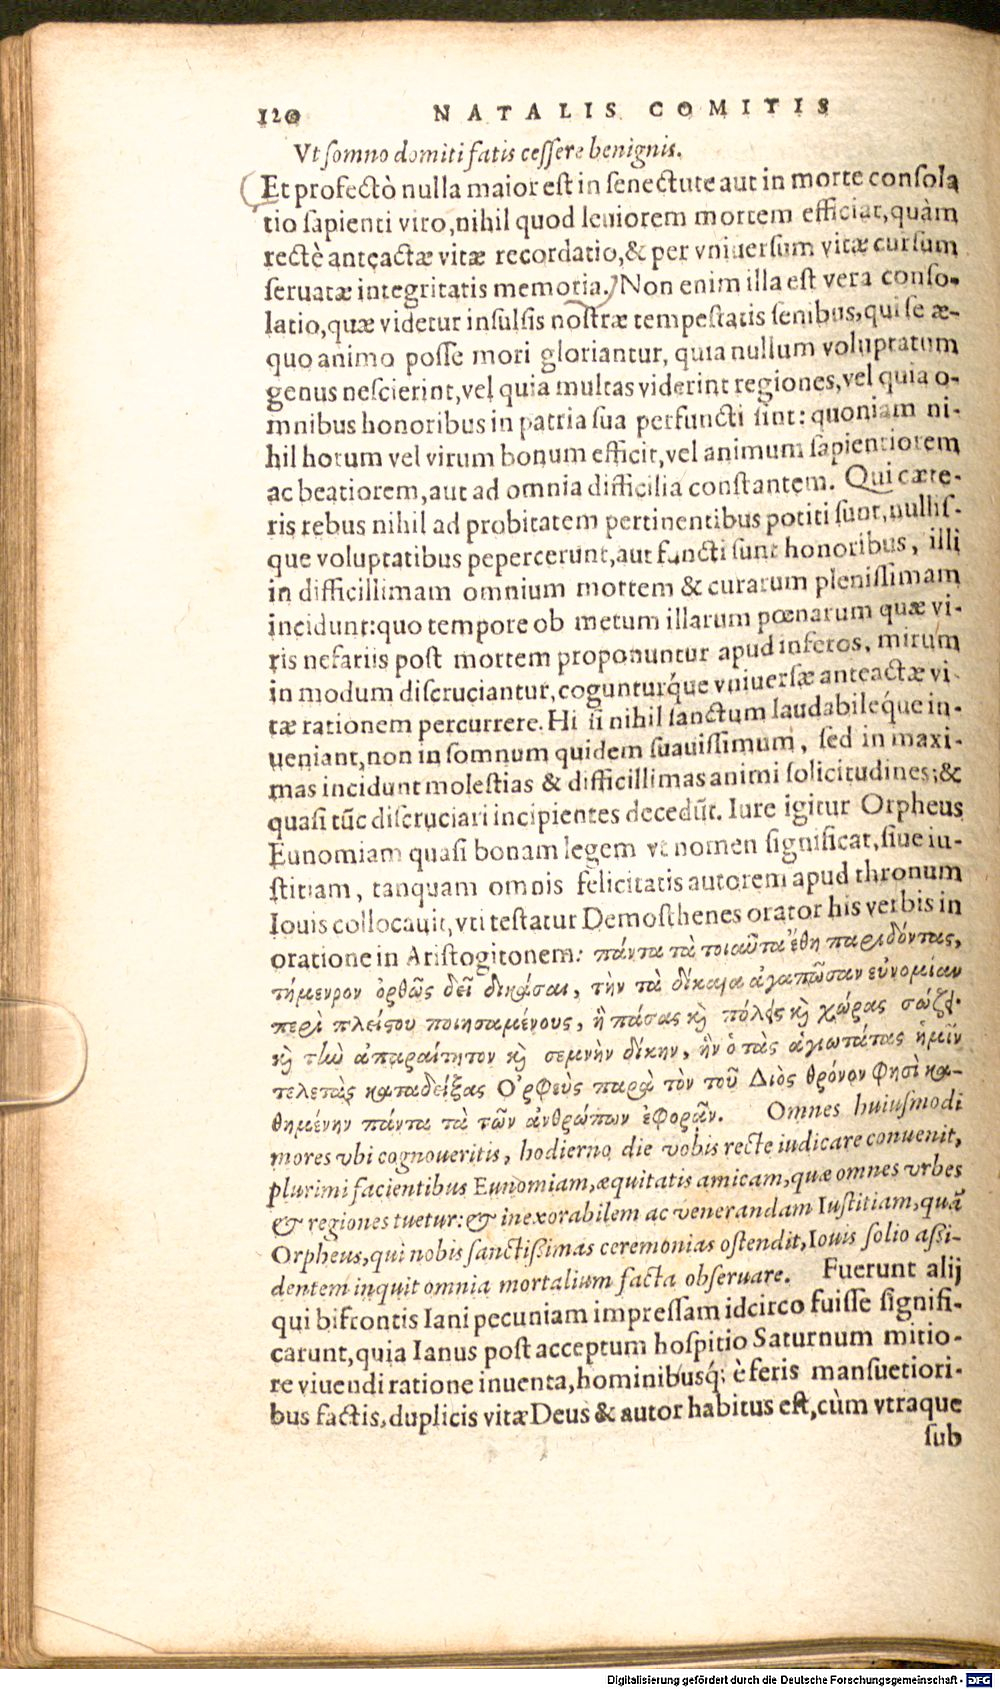 120 NATALIS COMITIS
Vt somno domiti fatis cessere benignis.
Et profectò nulla maior est in senectute aut in morte consola
tio sapienti viro, nihil quod leuiorem mortem efficiat, quàm
rectè anteactæ vitæ recordatio, & per vniuersum vitæ cursum
seruatæ integritatis memoria. Non enim illa est vera conso-
latio, quæ videtur insulsis nostræ tempestatis senibus, qui se æ-
quo animo posse mori gloriantur, quia nullum voluptatum
genus nescierint, vel quia multas viderint regiones, vel quia o-
mnibus honoribus in patria sua perfuncti sint: quoniam ni-
hil horum vel virum bonum efficit, vel animum sapientiorem
ac beatiorem, aut ad omnia difficilia constantem. Qui cæte-
ris rebus nihil ad probitatem pertinentibus potiti sunt, nullis-
que voluptatibus pepercerunt, aut functi sunt honoribus, illi
in difficillimam omnium mortem & curarum plenissimam
incidunt: quo tempore ob metum illarum pœnarum quæ vi-
ris nefariis post mortem proponuntur apud inferos, mirum
in modum discruciantur, coguntuŕque vniuersæ anteactæ vi-
tæ rationem percurrere. Hi si nihil sanctum laudabiléque in-
ueniant, non in somnum quidem suauissimum, sed in maxi-
mas incidunt molestias & difficillimas animi solicitudines; &
quasi tũc discruciari incipientes decedũt. Iure igitur Orpheus
Eunomiam quasi bonam legem vt nomen significat, siue iu-
stitiam, tanquam omnis felicitatis autorem apud thronum
Iouis collocauit, vti testatur Demosthenes orator his verbis in
oratione in Aristogitonem: πάντα τὰ τοιαῦτα ἔθη παριδόντας,
τήμενρον ὀρθῶς δεῖ δικάσαι, τὴν τὰ δίκαια ἀγαπῶσαν εὐνομίαν
περὶ πλείστου ποιησαμένους, ἣ πάσας καὶ πόλεις καὶ χώρας σώζει·
καὶ τὴν ἀπαραίτητον καὶ σεμνὴν δίκην, ἣν ὁ τὰς ἁγιωτάτας ἡμῖν
τελετὰς καταδείξας Ὀρφεὺς παρὰ τὸν τοῦ Διὸς θρόνον φησὶ κα-
θημένην πάντα τὰ τῶν ἀνθρώπων ἐφορᾶν. Omnes huiusmodi
mores vbi cognoueritis, hodierno die vobis recte iudicare conuenit,
plurimi facientibus Eunomiam, æquitatis amicam, quæ omnes vrbes
& regiones tuetur: & inexorabilem ac venerandam Iustitiam, quã
Orpheus, qui nobis sanctissimas ceremonias ostendit, Iouis solio assi-
dentem inquit omnia mortalium facta obseruare. Fuerunt alij
qui bifrontis Iani pecuniam impressam idcirco fuisse signifi-
carunt, quia Ianus post acceptum hospitio Saturnum mitio-
re viuendi ratione inuenta, hominibusq́; è feris mansuetiori-
bus factis, duplicis vitæ Deus & autor habitus est, cùm vtraque
sub
Digitalisierung gefördert durch die Deutsche Forschungsgemeinschaft - DFG